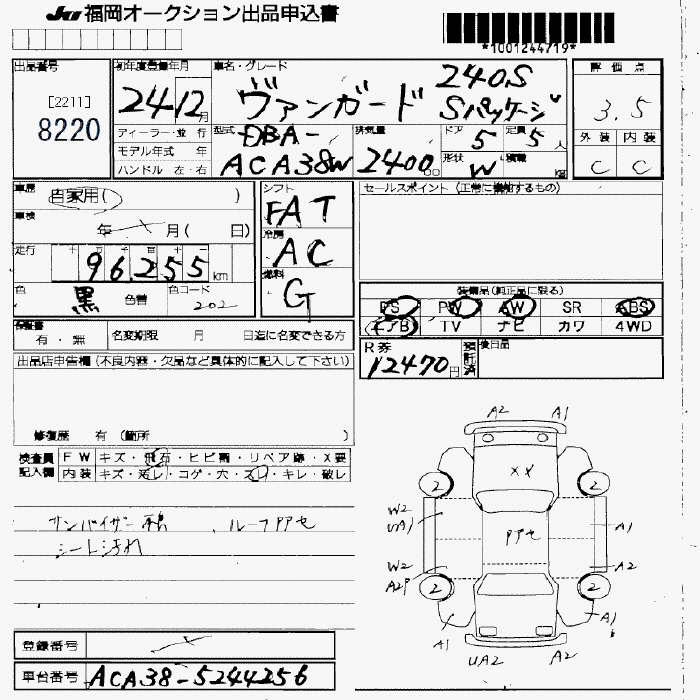 JU 福岡オークション出品申込書
*1001244719*
出品番号
[2211]
8220
初年度登録年月
24 12月
車名・グレード
ヴァンガード 240S
Sパッケージ
評価点
3.5
外装 内装
C C
ディーラー・並行
モデル年式 年
ハンドル 左・右
型式
DBA-
ACA38W
排気量
2400cc
ドア
5
定員
5人
形状
W
積載
kg
車歴
自家用( )
車検
年 月( 日)
走行
十 万 千 百 十 一
96,255 km
色
黒
色替
色コード
202
シフト
FAT
冷房
AC
燃料
G
セールスポイント(正常に機能するもの)
装備品(純正品に限る)
PS PW AW SR ABS
エアB TV ナビ カワ 4WD
保証書
有・無
名変期限 月 日迄に名変できる方
R券
12470円
預託済
後日品
出品店申告欄(不良内容・欠品など具体的に記入して下さい)
修復歴 有(箇所 )
検査員記入欄
FW キズ・飛石・ヒビ割・リペア跡・X要
内装 キズ・汚レ・コゲ・穴・スレ・キレ・破レ
サンバイザー、ルーフアアセ
シート汚れ
登録番号
車台番号
ACA38-5244256
A2 A1
XX
2 2
W2
UA1
アアセ
A1
W2
A2
2 2
A1 A1
UA2 A2